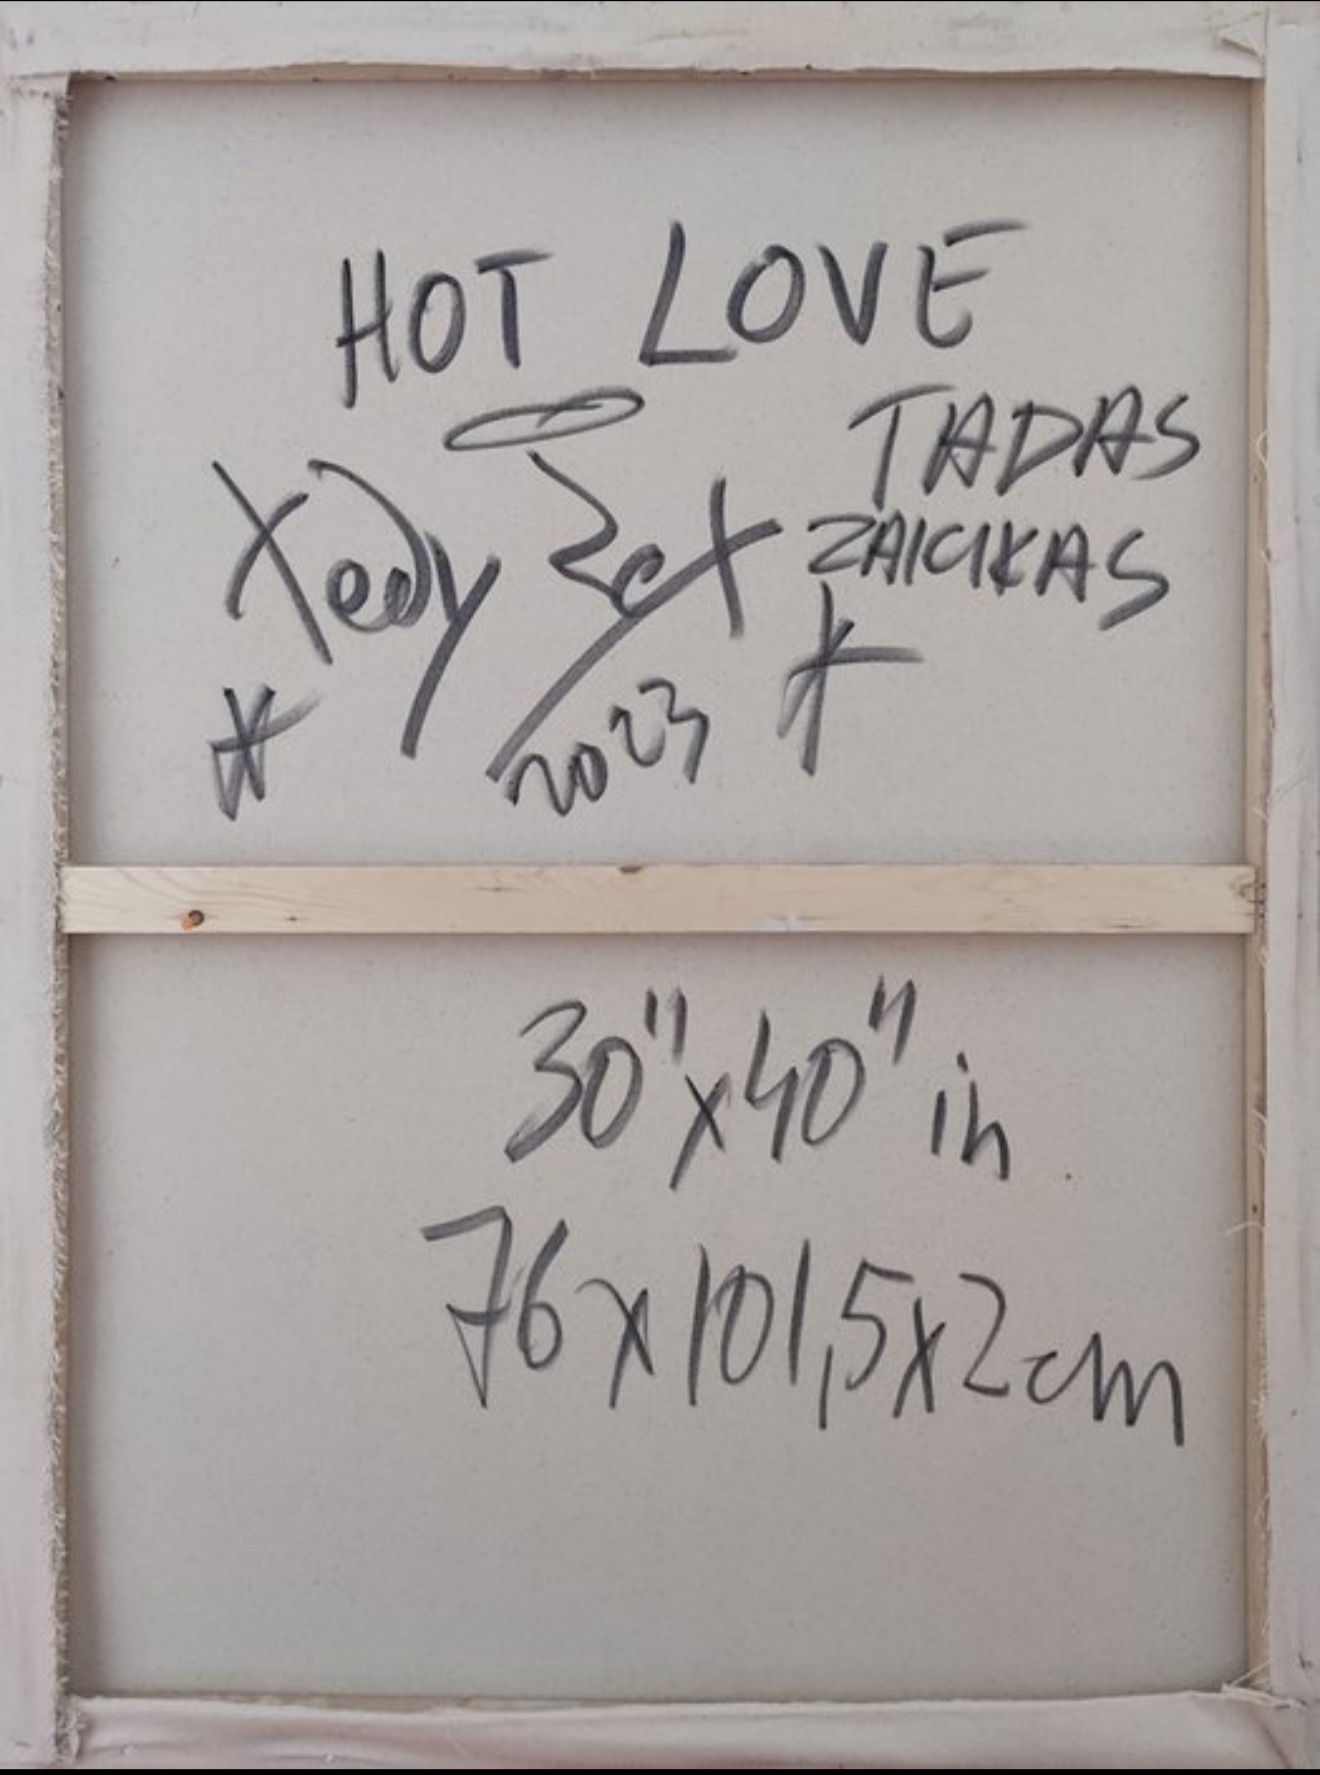 HOT LOVE
TADAS
ZAICIKAS
2023
30"x40" in
76x101,5x2cm